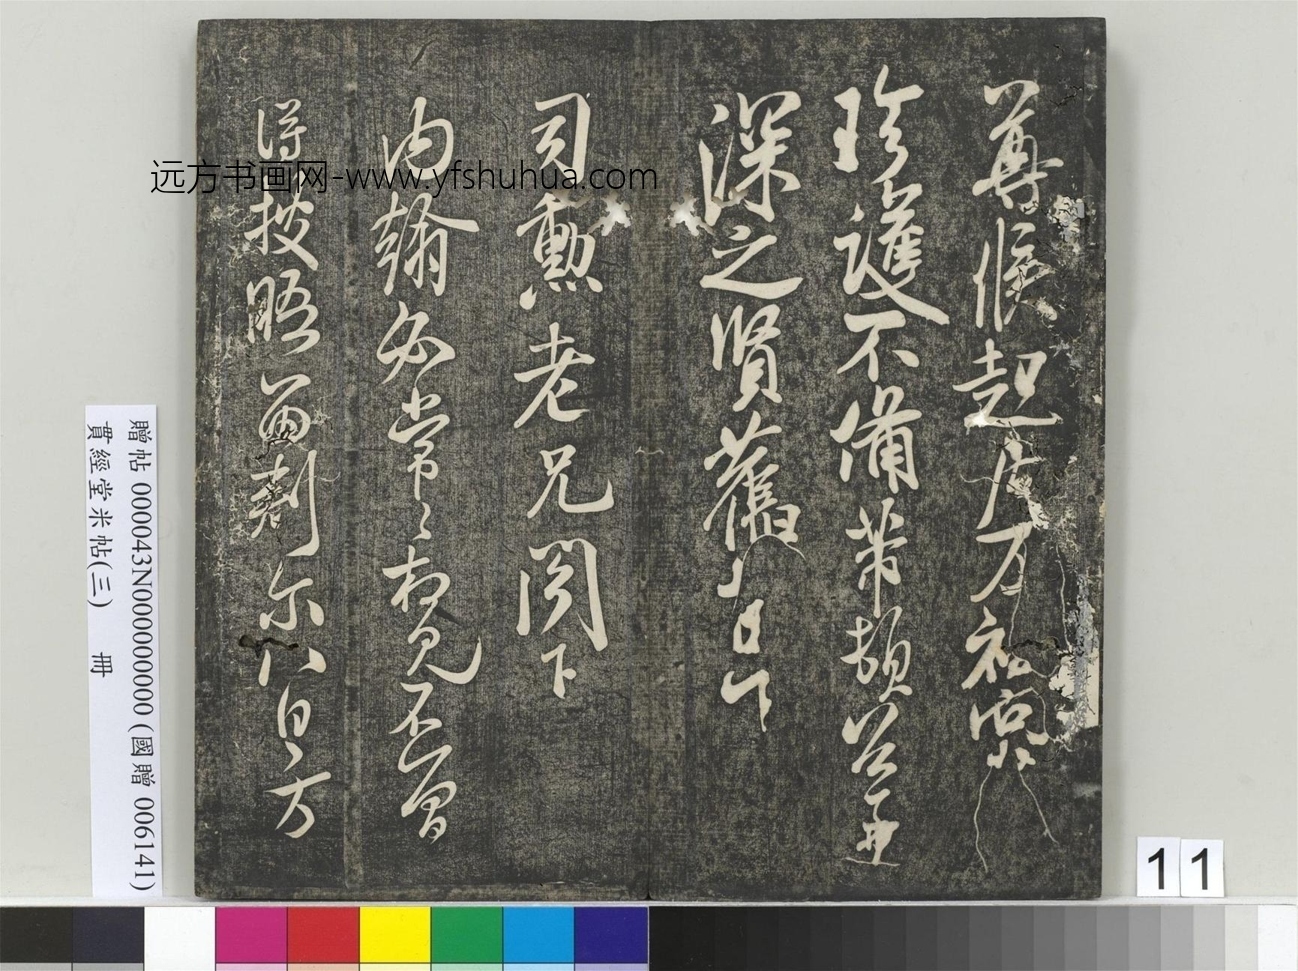 尊候起居万福寒
珍護不備芾頓首
深之賢舊
司勲老兄閣下
内翰必常〻相見不曾
得披晤
方
远方书画网-www.yfshuhua.com
贈帖 000043N000000000 (國贈 006141)
貫經堂米帖(三) 冊
11